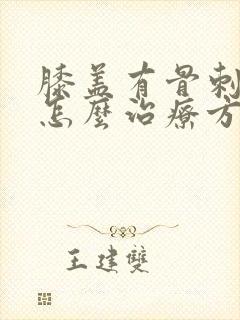 膝盖有骨刺
怎麼治療方
王建雙